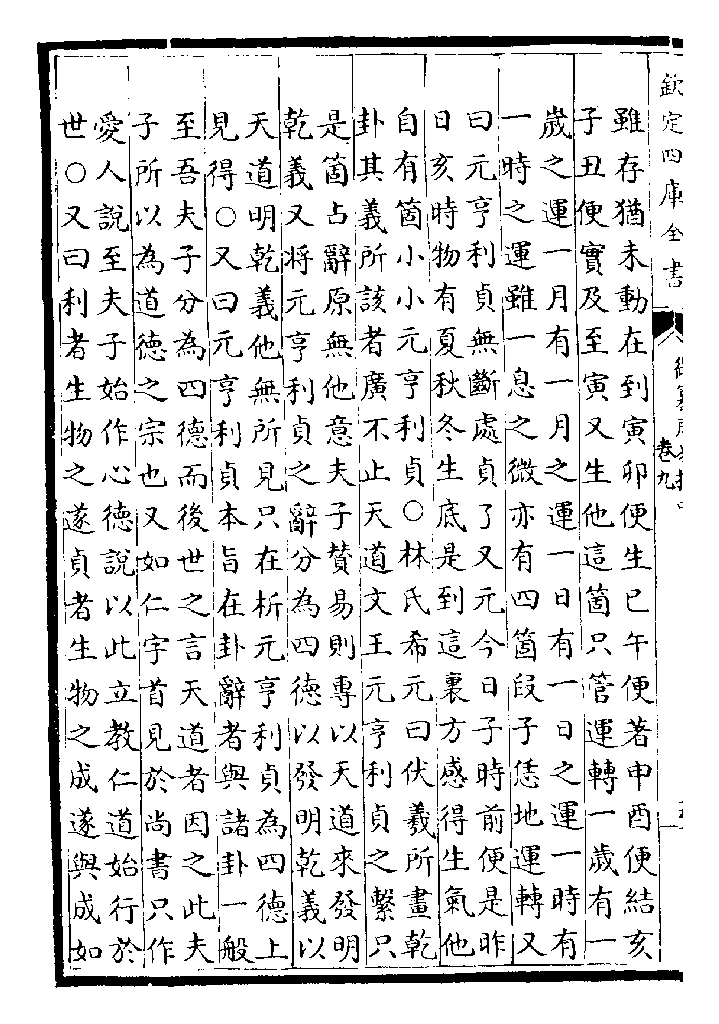 欽定四庫全書
卷九
雖存猶未動在到寅卯便生巳午便著申酉便結亥
子丑便實及至寅又生他這箇只管運轉一歲有一
歲之運一月有一月之運一日有一日之運一時有
一時之運雖一息之微亦有四箇段子恁地運轉又
曰元亨利貞無斷處貞了又元今日子時前便是昨
日亥時物有夏秋冬生底是到這裏方感得生氣他
自有箇小小元亨利貞○林氏希元曰伏羲所畫乾
卦其義所該者廣不止天道文王元亨利貞之繫只
是箇占辭原無他意夫子贊易則專以天道來發明
乾義又將元亨利貞之辭分為四德以發明乾義以
天道明乾義他無所見只在析元亨利貞為四德上
見得○又曰元亨利貞本旨在卦辭者與諸卦一般
至吾夫子分為四德而後世之言天道者因之此夫
子所以為道德之宗也又如仁字首見於尚書只作
愛人說至夫子始作心德說以此立教仁道始行於
世○又曰利者生物之遂貞者生物之成遂與成如